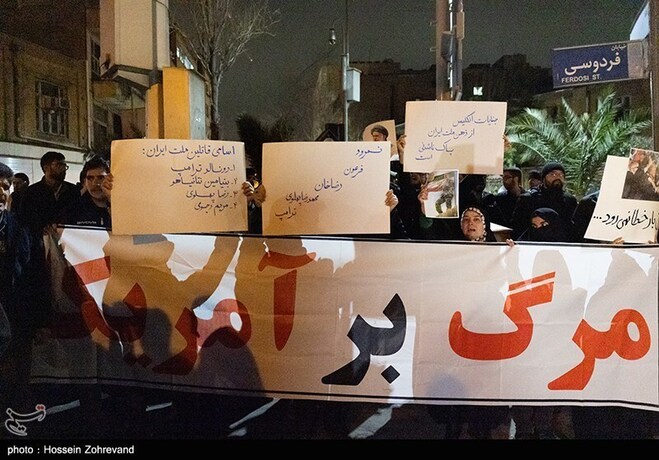 خیابان
فردوسی
FERDOSI ST.
اسامی قاتلین ملت ایران:
۱. دونالد ترامپ
۲. بنیامین نتانیاهو
۳. رضا پهلوی
۴. مریم رجوی
نمرود
فرعون
رضاخان
محمدرضا پهلوی
ترامپ
جنایات انگلیس
از ذهن ملت ایران
پاک ناشدنی
است
مرگ بر آمریکا
تسنیم
photo : Hossein Zohrevand